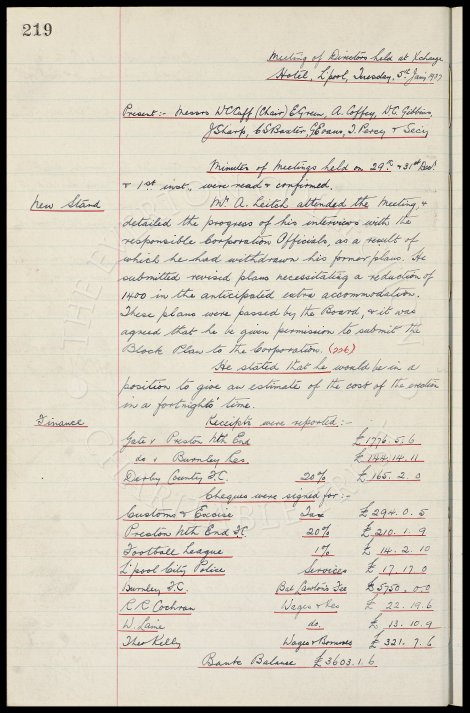 219
Meeting of Directors held at Xchange
Hotel, L'pool, Tuesday, 5th Jany 1937
Present:- Messrs W C Cuff (Chair) E Green, A. Coffey, W.C. Gibbins,
J Sharp, C S Baxter, G Evans, T. Percy & Secy
Minutes of Meetings held on 29th & 31st Decr
& 1st inst., were read & confirmed.
New Stand
Mr A. Leitch attended the Meeting, &
detailed the progress of his interviews with the
responsible Corporation Officials, as a result of
which he had withdrawn his former plans. He
submitted revised plans necessitating a reduction of
1400 in the anticipated extra accommodation.
These plans were passed by the Board, & it was
agreed that he be given permission to submit the
Block Plan to the Corporation. (226)
He stated that he would be in a
position to give an estimate of the cost of the erection
in a fortnights' time.
Finance
Receipts were reported:-
Gate v Preston Nth End £1776. 5. 6
do v Burnley Res. £144. 14. 11
Derby County F.C. 20% £165. 2. 0
Cheques were signed for:-
Customs & Excise Tax £294. 0. 5
Preston Nth End F.C. 20% £210. 1. 9
Football League 1% £14. 2. 10
L'pool City Police Services £17. 17. 0
Burnley F.C. Bal Lawton's Fee £5750. 0. 0
C R Cochran Wages & Xes £22. 19. 6
W. Laine do. £13. 10. 9
Theo Kelly Wages & Bonuses £321. 7. 6
Bank Balance £3603. 1. 6